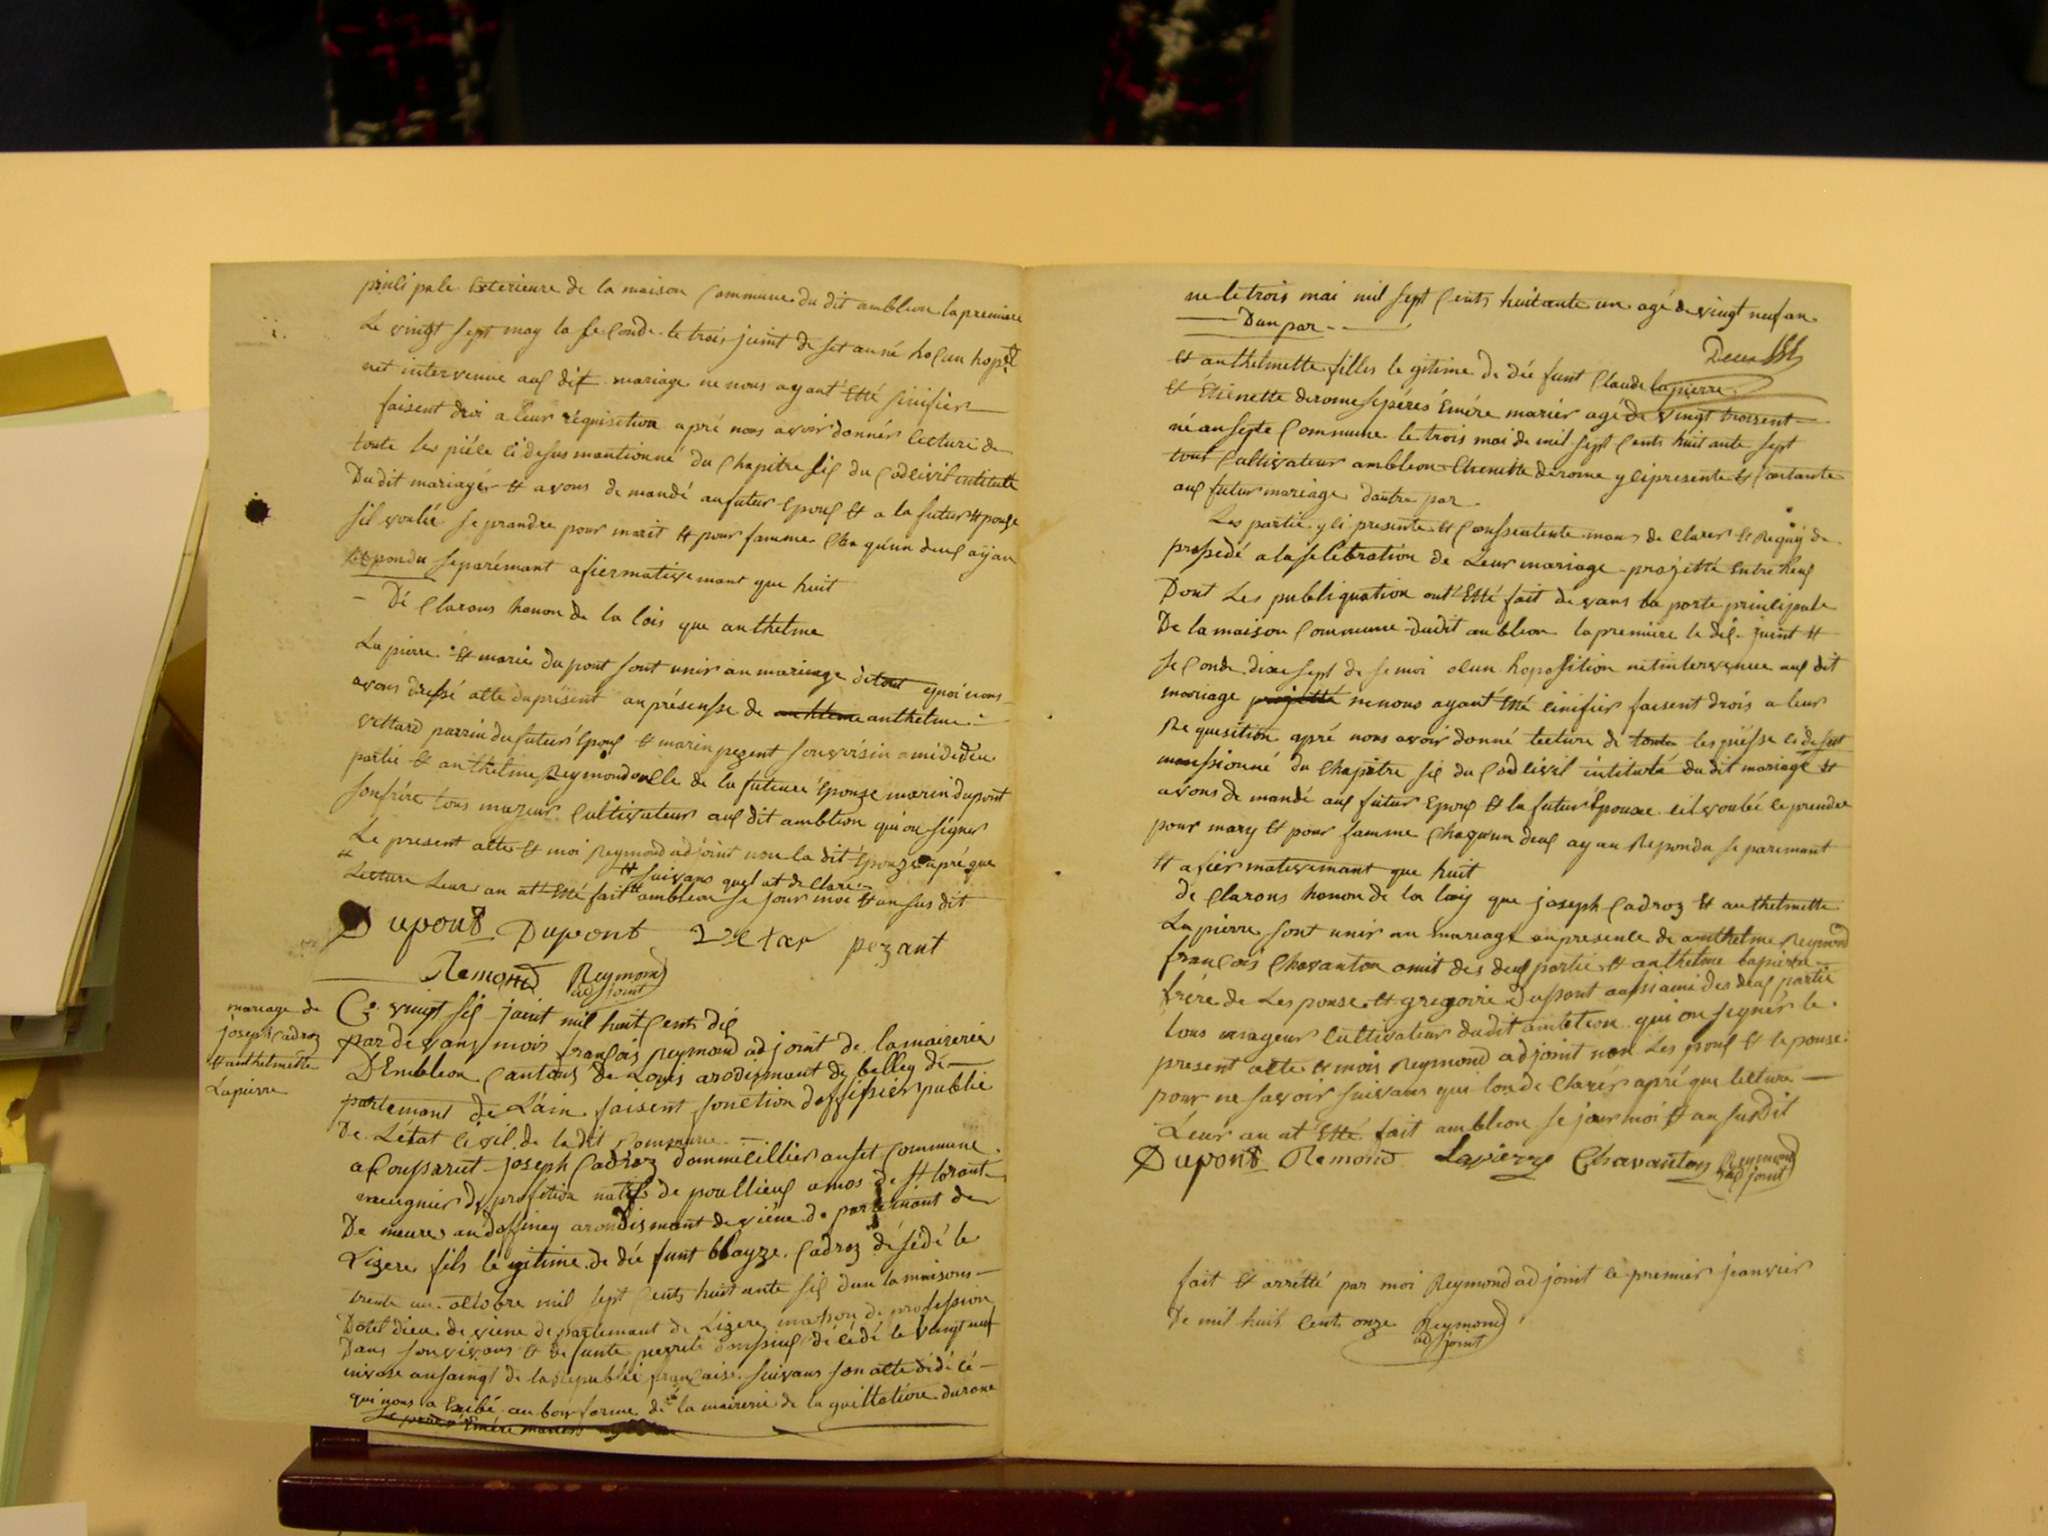 prinlipale Exterieure de la maison Commune du dit ambleon la premiere
Le vingt sept may la seConde le trois juint de set anné hoCun
net intervenue auξ dit mariage ne nous ayant Etté sinifier
faisent droi a leur réquisition apré nous avoir donnér lecture de
toute les piéce ci desus mantionné du Chapitre siξ du Codecivil intitulé
Du dit mariagér et avons demandé au futur Epouξ et a la futur Epouze
sil voulée se prandre pour marit et pour famme Cha quun deuξ ayan
repondu separémant afiermative mant que huit
- Dé Clarons honon de la lois que anthelme
La pierre et marie du pont sont unir an mariage de tout quoi nous
avons dressé atte du présent an présensse de anthelme
vettard parrin du futur Epouξ et marin pezent son voisin ami de deu
partie et anthelme Reymond oncle de la future Epouze marin dupont
son frére tous mageur Cultivateur auξ dit ambléon qui on signer
Le present atte et moi Reymond adjoint non la dit Epouze apré que
et suivans quel at de Claré
Lecture Leur an at Etté fait ambleon se jour moi et an sus dit
Dupont Dupont Vettar pezant
Remond Reymond
adjoint
mariage de
joseph Cadroz
et anthelmette
Lapierre
Ce vingt siξ juint mil huit Cents diξ
par devans mois françois Reymond adjoint de la mairerie
DEmbleon Cantons de Louis arodismant de belley dé
partemant de Lain faisent fonction doffisier public
De Létat Civil de la dit Commune
a Comparut joseph Cadroz dommicillier anset Commune
meugnier de profition natifs de
De meures an doffiney arondismant de viéne de partemant de
Lizere fils le gitime de dé funt blayze Cadroz désédé le
trente un octobre mil sept Cents huit ante siξ dan la maisons
Dotel dieu de viene de partemant de Lizere de profession
Dans son vivans et defunte décédé le vingt neuf
nivose an saingt de la Republié française suivans son atte
qui nous a Exibé an bon forme de la mairerie de la guillotiére durone
ne le trois mai mil sept Cents huitante un agé de vingt neuf an
Dun par
et anthelmette filles le gitime de dé funt Claude lapierre
et Etienette derome sepérés Emére mariér agé de vingt troisent
né an septe Commune le trois mai de mil sept Cents huit ante sept
tous Cultivateur ambleon Etienette derome y ci presente et
auξ futur mariage dautre par
Les partie y ci presente et Conssentente de Clarer et Requi de
prossedé a la selébration de Leur mariage projetté Entre heuξ
Dont Les publiquation ont Etté fait devans la porte prinlipale
De la maison Commune dudit ambleon la premiere le diξ juint et
seConde dixe sept de se moi oCun hoposition net intervenue auξ dit
mariage projetté ne nous ayant Eté cinifier faisent drois a leur
Requesition apré nous avoir donné lecture de toutes les piésse ci desut
manssionné du Chapitre siξ du Codecivil intitulé dudit mariage et
avons de mandé auξ futur Epouξ et la futur Epouxe sil voulée ce prendre
pour mary et pour famme Chaquun deuξ ayan Repondu se paremant
et afiermativemant que huit
de Clarons honon de la loiy que joseph Cadroz et anthelmette
Lapierre sont unir an mariage an presence de anthelme Reymond
françois Chavanton amit des deuξ partie et anthelme lapierre
frére de Lespouse et gregoire dupont aussi ami des deuξ partie
tous mageur Cultivateur dudit ambléon qui on signér le
present atte et mois Reymond adjoint non Les pouξ et le pouse
pour ne savoir suivans qui lon de Clarér apré que lecture
Leur an at Etté fait ambleon se jour moi et an susdit
Dupont Remond Lapierre Chavanton Reymond
adjoint
fait et arrétté par moi Reymond adjoint le premier jeanvier
De mil huit Cents onze Reymond
adjoint